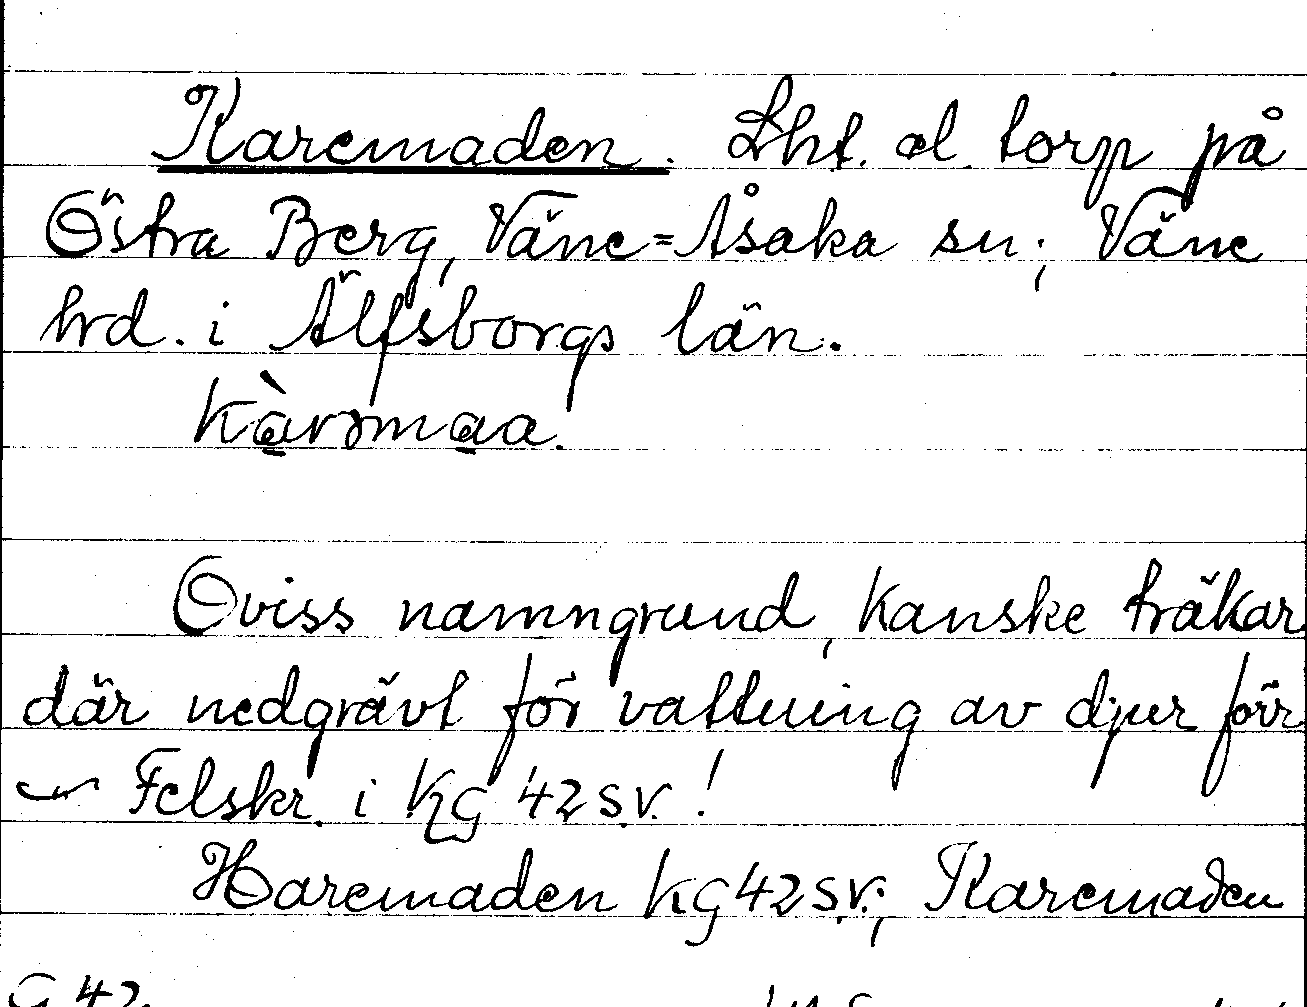 Karemaden. Lht. el. torp på
Östra Berg, Väne=Åsaka sn; Väne
hrd. i Älfsborgs län.
Kàrəmaa.
Oviss namngrund, kanske träkar
där nedgrävt för vattning av djur förr
Felskr. i KG 42 SV.!
Haremaden KG 42 SV.; Karemaden
G 42.